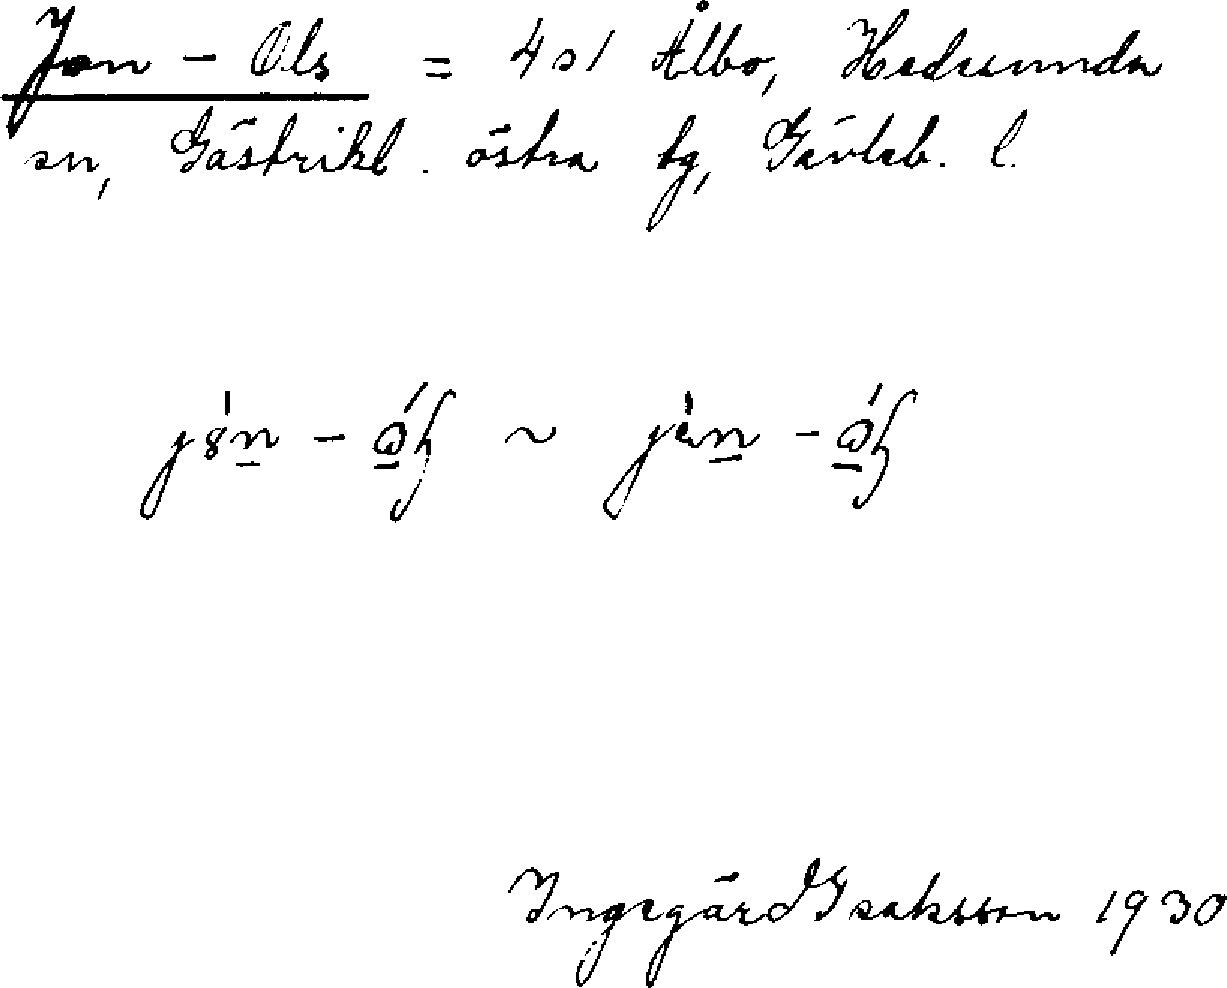 Jon - Ols = 4a1 Ålbo, Hedesunda
sn, Gästrikl. östra tg, Gävleb. l.
Ingegärd Isaksson 1930